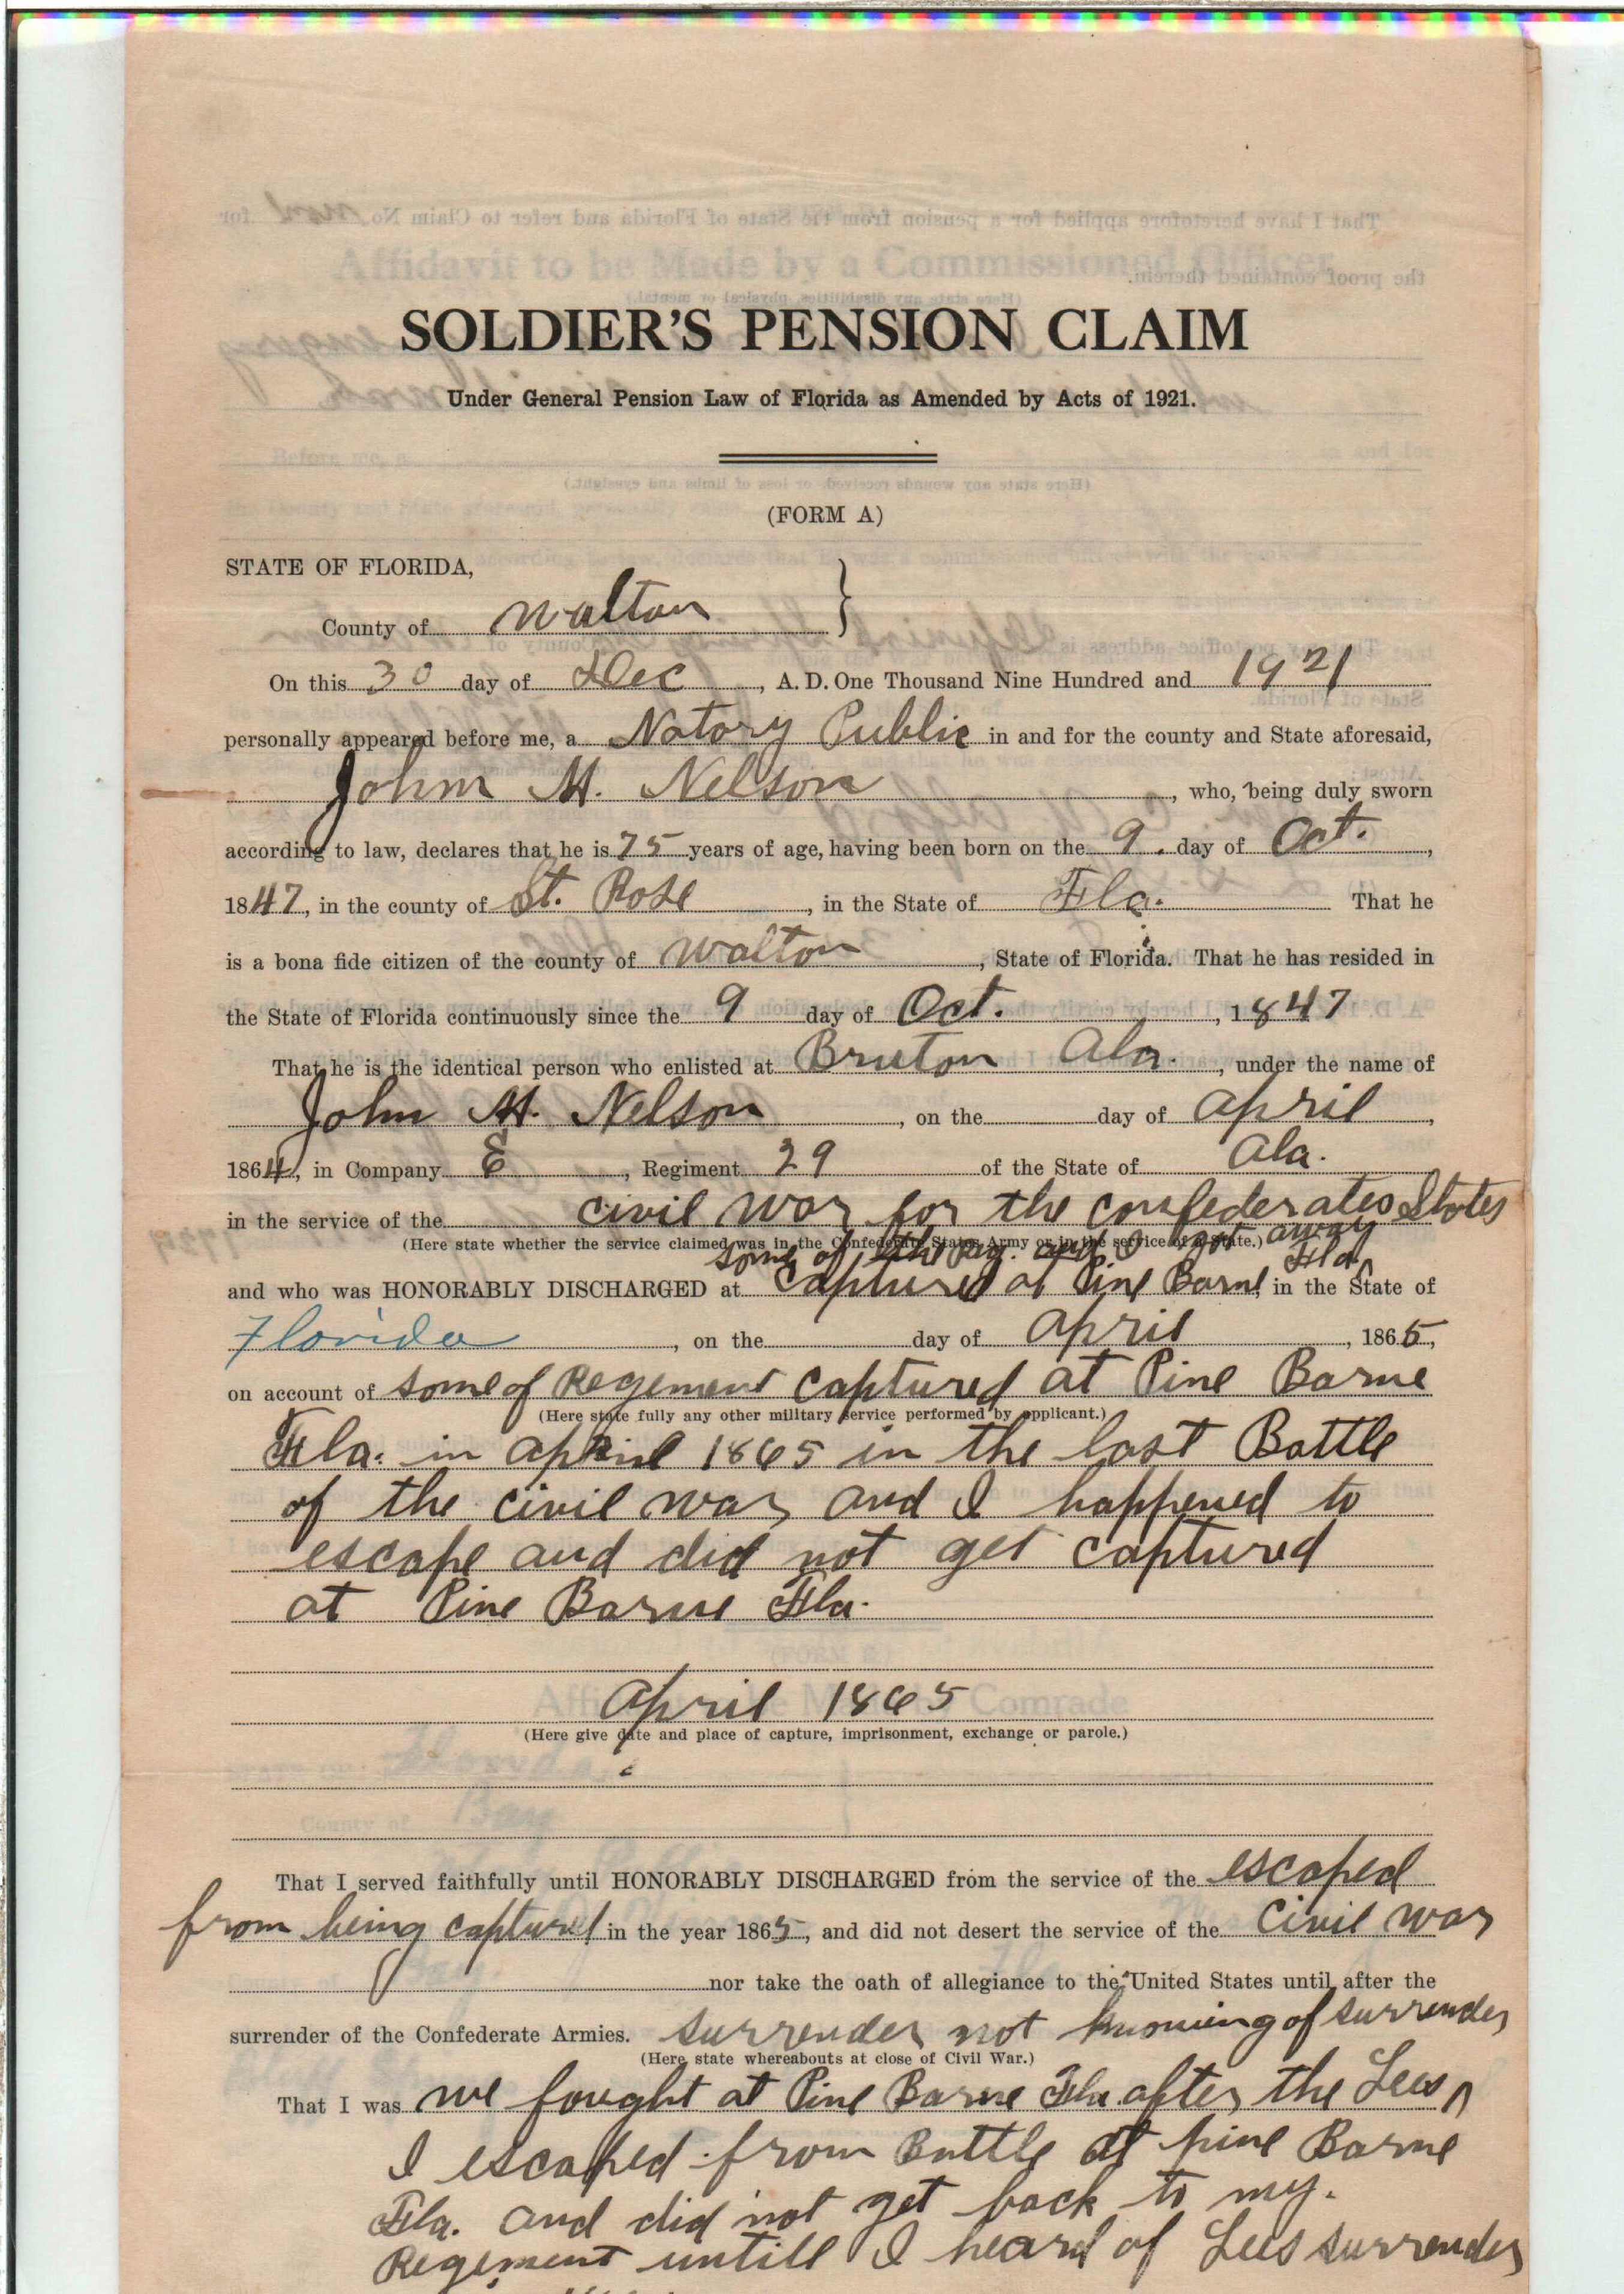 SOLDIER'S PENSION CLAIM
Under General Pension Law of Florida as Amended by Acts of 1921.
(FORM A)
STATE OF FLORIDA,
County of Walton
On this 30 day of Dec, A. D. One Thousand Nine Hundred and 1921
personally appeared before me, a Notary Public in and for the county and State aforesaid,
John M. Nelson, who, being duly sworn
according to law, declares that he is 75 years of age, having been born on the 9. day of Oct.,
1847, in the county of St. Rose, in the State of Fla. That he
is a bona fide citizen of the county of Walton, State of Florida. That he has resided in
the State of Florida continuously since the 9 day of Oct., 1847
That he is the identical person who enlisted at Bruton Ala., under the name of
John M. Nelson, on the day of April,
1864, in Company E, Regiment 29 of the State of Ala.
in the service of the civil war for the confederates States
(Here state whether the service claimed was in the Confederate States Army or in the service of a State.)
some of the Reg. and I got away
Fla.
and who was HONORABLY DISCHARGED at captured at Pine Barne, in the State of
Florida, on the day of April, 1865,
on account of some of Regement captured at Pine Barne
(Here state fully any other military service performed by applicant.)
Fla. in April 1865 in the last Battle
of the civil war and I happened to
escape and did not get captured
at Pine Barne Fla.
April 1865
(Here give date and place of capture, imprisonment, exchange or parole.)
That I served faithfully until HONORABLY DISCHARGED from the service of the escaped
from being captured in the year 1865, and did not desert the service of the Civil war
nor take the oath of allegiance to the United States until after the
surrender of the Confederate Armies. surrender not knowing of surrender
(Here state whereabouts at close of Civil War.)
That I was we fought at Pine Barne Fla. after the Lees
I escaped from Battle at pine Barne
Fla. and did not get back to my.
Regement untill I heard of Lees surrender